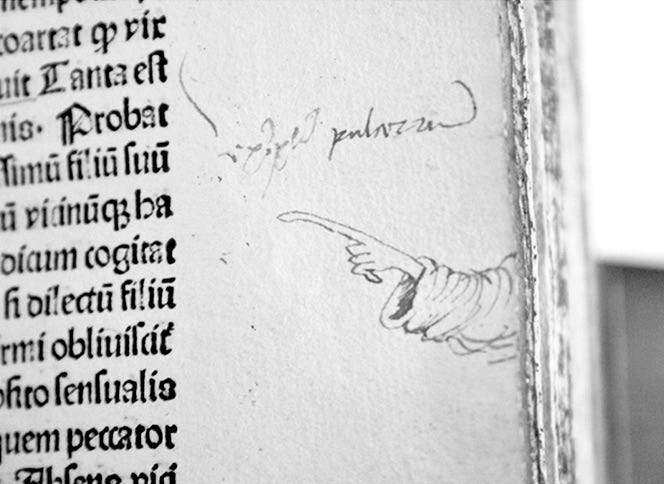 coartat ꝙ vix
uit Tanta est
nis. Probat
ssimū filiū suū
ū vicinūqꝫ ha
dicum cogitat
si dilectū filiū
rmi obliuiscit᷑
osito sensualis
quem peccator
Absens vici
pulcrum